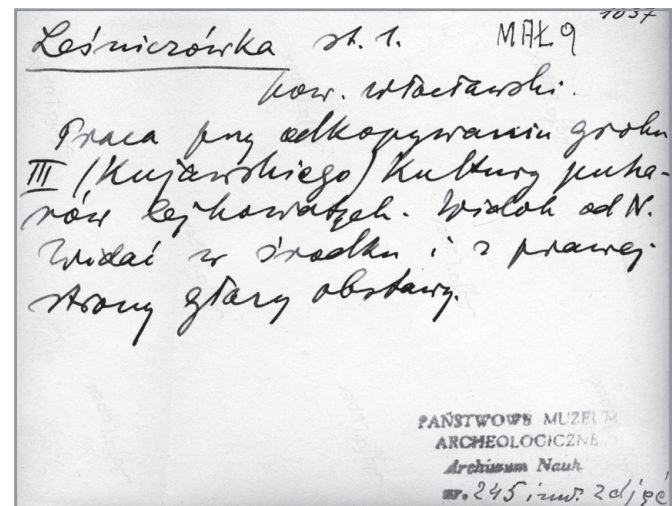 1037
Leśniczówka st. 1. MAŁ 9
pow. włocławski.
Praca przy odkopywaniu grobu
III (Kujawskiego) Kultury pucha-
rów lejkowatych. Widok od N.
Widać w środku i z prawej
strony głazy obstawy.
PAŃSTWOWE MUZEUM
ARCHEOLOGICZNE
Archiwum Nauk
nr. 245 inw. zdjęć